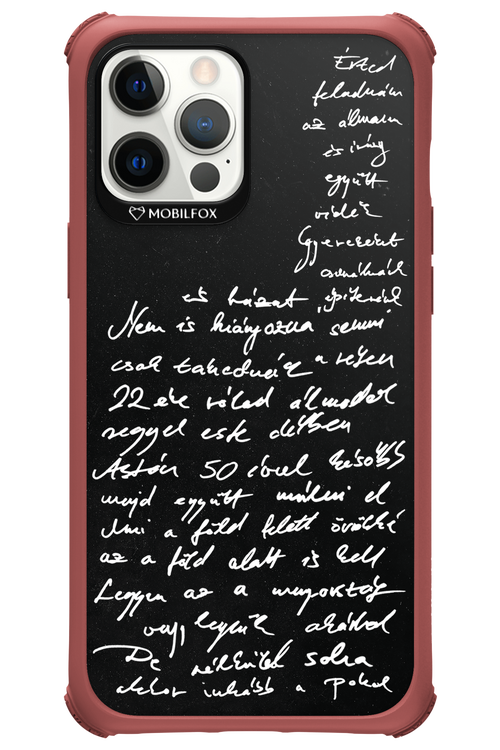 MOBILFOX
Érted
feladnám
az álmaim
és így
együtt
vidék
Gyerekeket
csinálnánk
és házat építenénk
Nem is hiányozna semmi
csak takednék a részem
22 éve rólad álmodok
reggel este délben
Aztán 50 évvel később
majd együtt múlni el
Ami a föld felett örökké
az a föld alatt is kell
Legyen az a mennyország
vagy legyünk akárhol
De nélküled soha
akkor inkább a Pokol